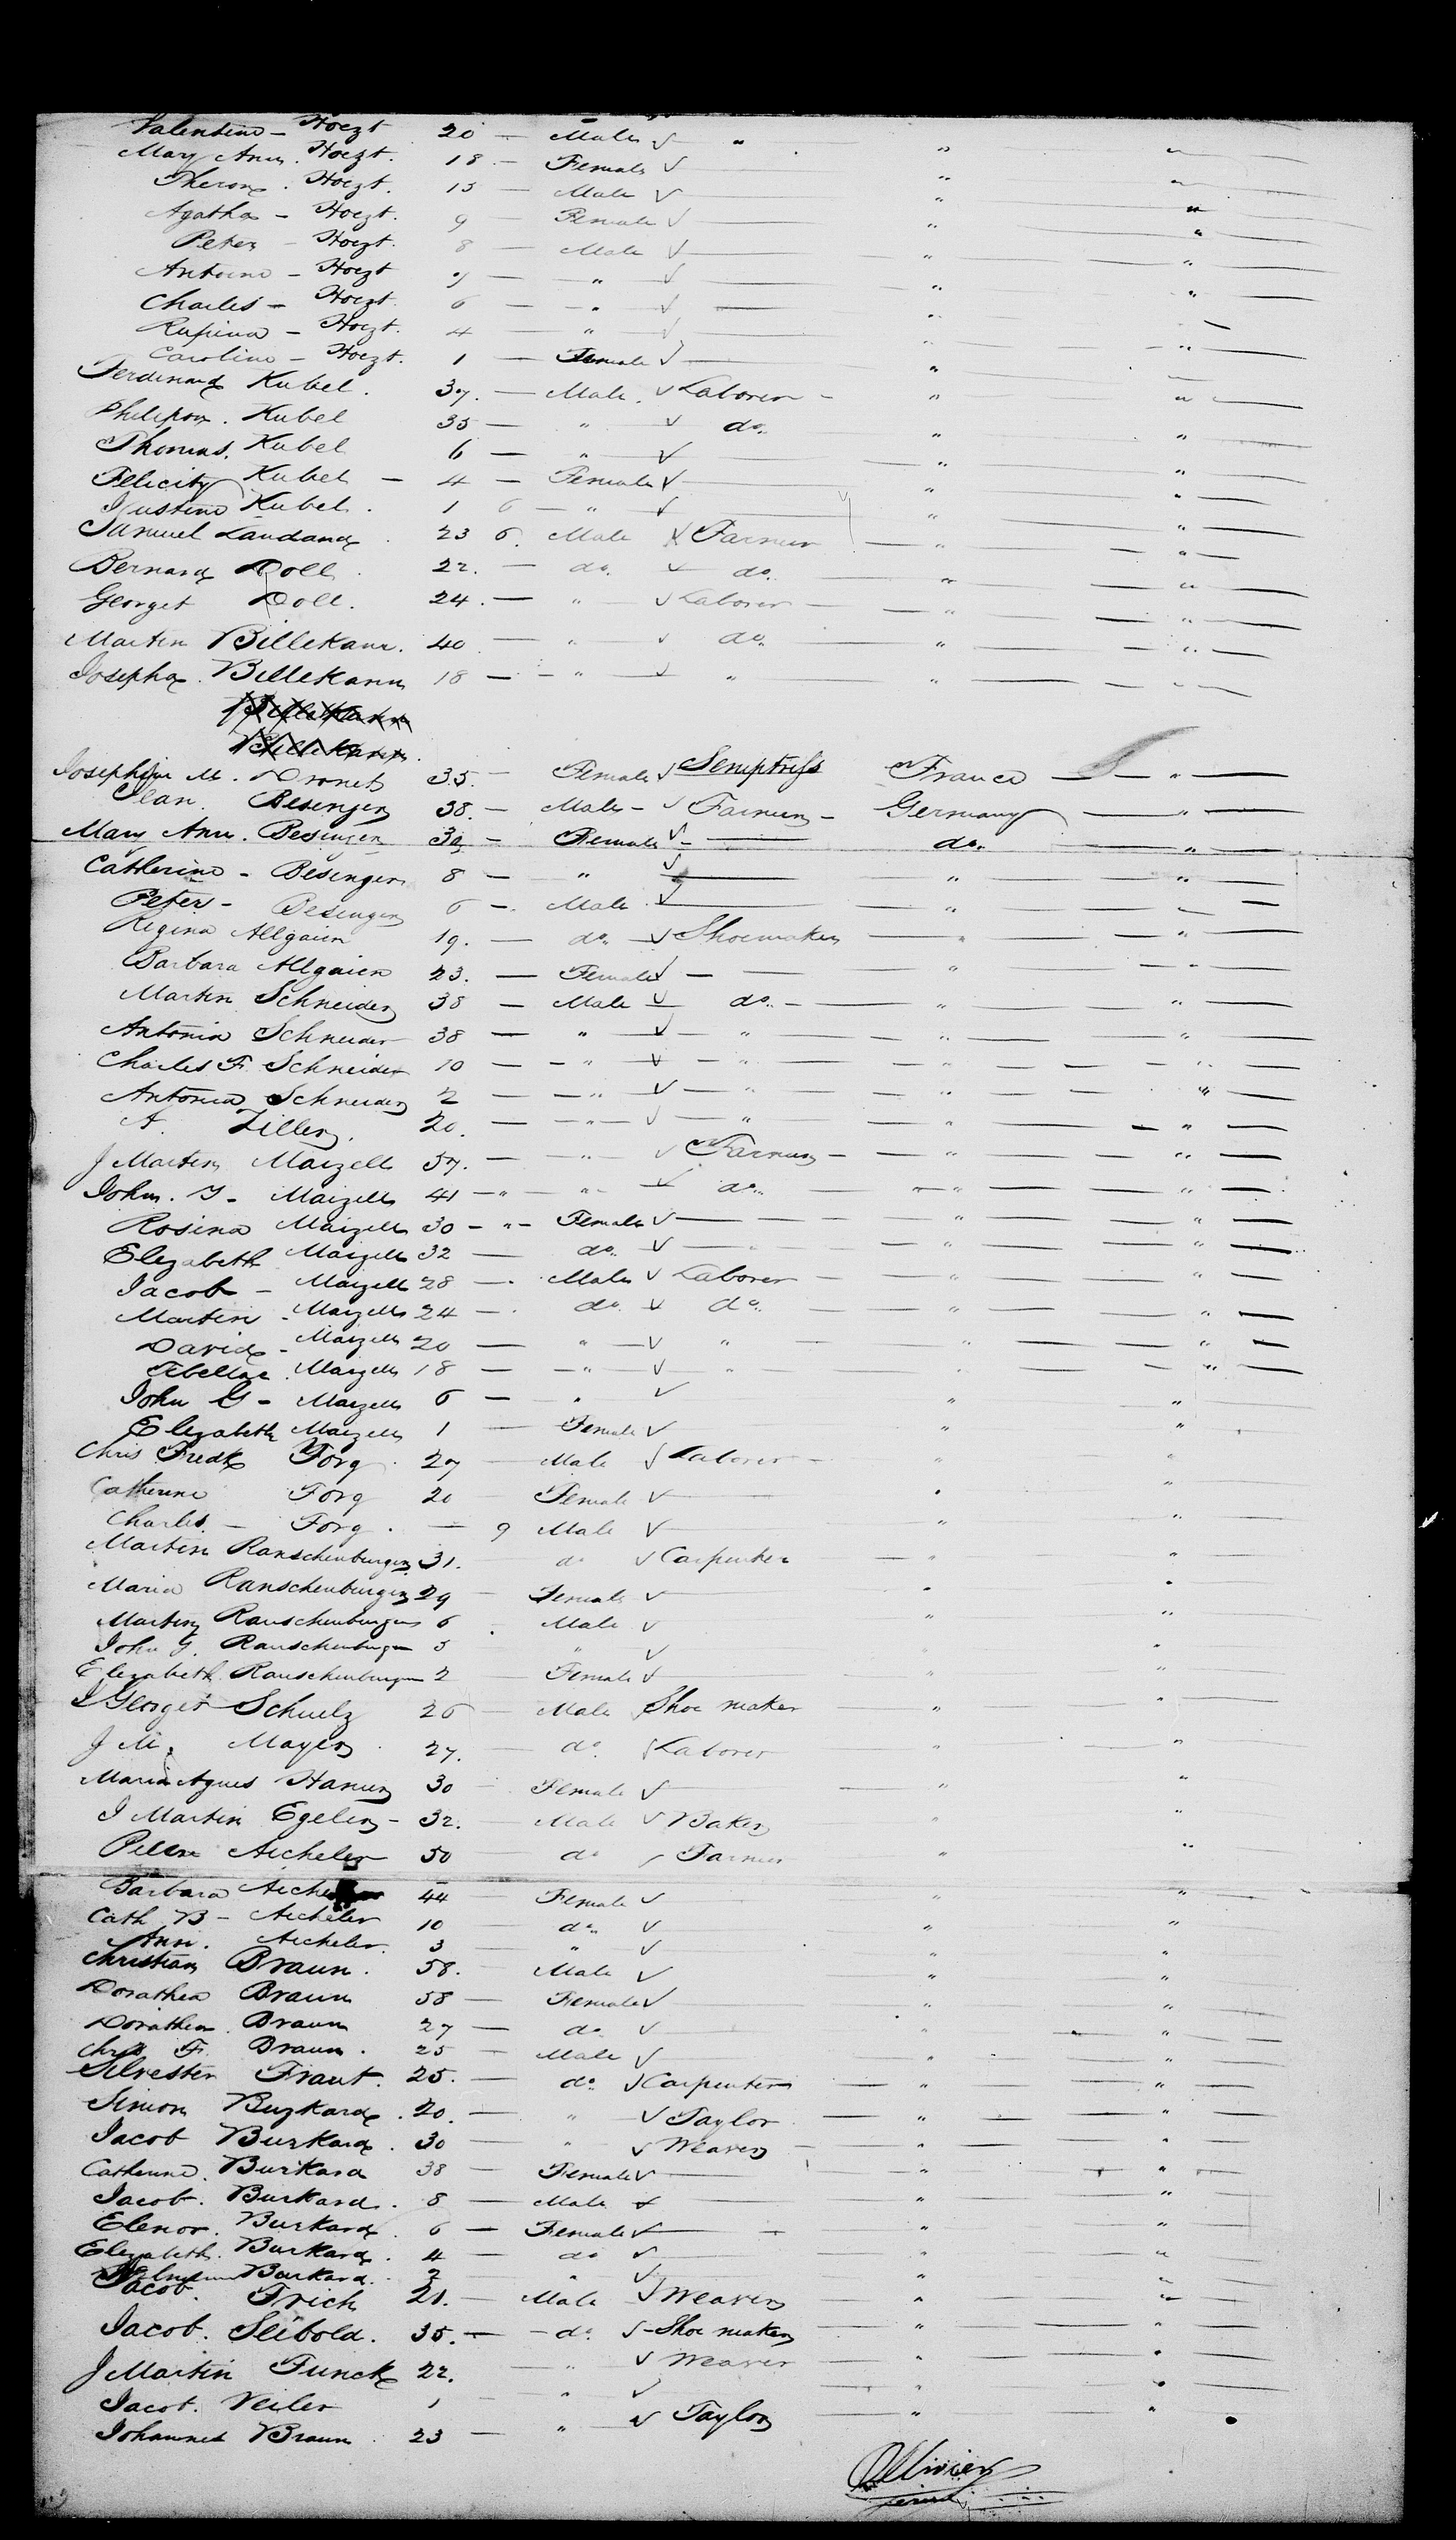 Valentine - Hoezt 20 — Male √ " " "
Mary Ann. Hoezt. 18 — Female √ — " "
Hoezt. 15 — Male √ — " "
Agatha - Hoezt. 9 — Female √ — " "
Peter - Hoezt. 8 — Male √ — " "
Antoine - Hoezt 7 — " √ — " "
Charles - Hoezt. 6 — " √ — " "
Rufina - Hoezt. 4 — " √ — " "
Caroline - Hoezt. 1 — Female √ — " "
Ferdinand Kubel. 37. — Male. √ Laborer — " "
Kubel 35 — " √ do. " "
Thomas. Kubel 6 — " √ — " "
Felicity Kubel — 4 — Female √ — " "
Justine Kubel. 1 6 — " √ — " "
Samuel Landand 23 6. Male √ Farmer — " "
Bernard Doll 22. — do. √ do. " "
George Doll. 24. — " √ Laborer — " "
Martin Billekann. 40 — " √ do. " "
Josepha. Billekann 18 — " √ " " "
Billekann
Billekann
Josephine M. Dronet 35. Female √ Semptress France — " —
Jean. Besenger 38. — Male — √ Farmer — Germany — " —
Mary Ann. Besenger 30 — Female √ — do. — " —
Catherine - Besenger 8 — " √ — " "
Peter - Besenger 6 — Male √ — " "
Regina Allgaier 19. — do. √ Shoemaker — " "
Barbara Allgaier 23. — Female √ — " "
Martin Schneider 38 — Male √ do. — " "
Antonia Schneider 38 — " √ — " " "
Charles F. Schneider 10 — " √ — " " "
Antonia Schneider 2 — " √ — " " "
A. Ziller. 20. — " √ — " " "
J Martin Maizell 57. — " √ Farmer — " "
John. G - Maizell 41 — " " √ do. " "
Rosina Maizell 30 — " — Female √ — " "
Elizabeth Maizell 32 — do. √ — " "
Jacob - Maizell 28 — Male √ Laborer — " "
Martin - Maizell 24 — do. √ do. — " "
David - Maizell 20 — " √ " — " "
Maizell 18 — " √ " " "
John G - Maizell 6 — " √ " "
Elizabeth Maizell 1 — Female √ " "
Chris Fredk Forg. 27 — Male √ Laborer — " "
Catherine Forg 20 — Female √ — " "
Charles. - Forg. — 9 Male √ — " "
Martin Ranschenburger 31. do √ Carpenter — " "
Maria Ranschenburger 29 — Female √ — " "
Martin Ranschenburger 6 Male √ " "
John G. Ranschenburger 3 " √ " "
Elizabeth Ranschenburger 2 — Female √ " "
J George Schuelz 26 — Male √ Shoe maker " "
J M. Mayer. 27. — do. √ Laborer " "
Maria Agnes Hanun 30 — Female √ — " "
J Martin Egeler - 32. — Male √ Baker " "
Aicheler 50 do √ Farmer " "
Barbara Aicheler 44 — Female √ — " "
Cath B - Aicheler 10 do. √ — " "
Ann. Aicheler. 3 — " √ — " "
Christian Braun. 58. — Male √ " "
Dorathea Braun 58 — Female √ — " "
Dorathea. Braun 27 — do. √ — " "
Chris F. Braun. 25 — Male √ — " "
Silvester Fraut. 25. — do. √ Carpenter — " "
Simon Burkard. 20. — " √ Taylor — " "
Jacob Burkard. 30 — " √ Weaver — " "
Catherine. Burkard 38 — Female √ — " "
Jacob. Burkard. 8 — Male √ — " "
Elenor. Burkard. 6 — Female √ — " "
Elizabeth. Burkard. 4 — do √ — " "
Burkard. 2 — " √ — " "
Jacob. Frich 21. — Male √ Weaver — " "
Jacob. Seibold. 35. — do. √ Shoe maker — " "
J Martin Funck 22. — " √ Weaver — " "
Jacob. Veiler 1 — " √ — "
Johannes Braun 23 — " √ Taylor — " "
Ollivier